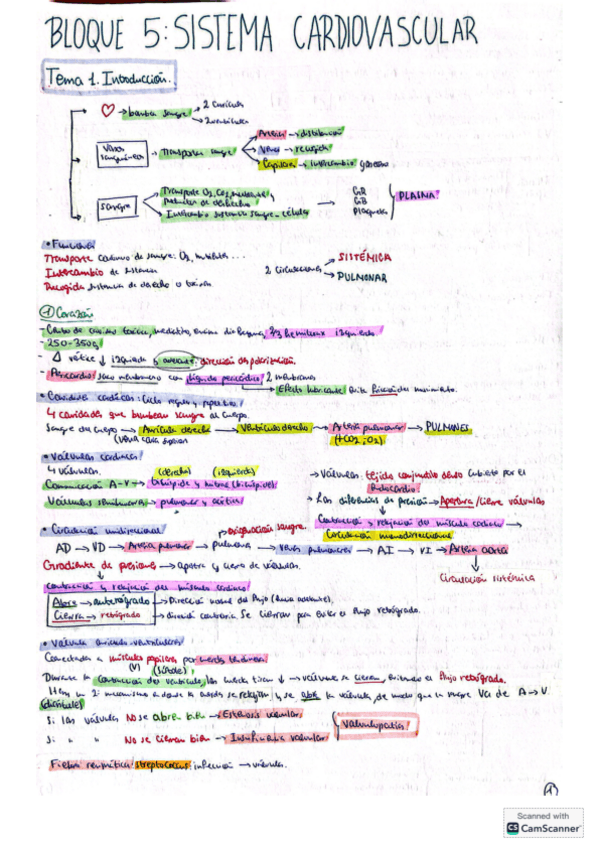 BLOQUE 5: SISTEMA CARDIOVASCULAR
Tema 1. Introducción.
→ bombea sangre → 2 aurículas
→ 2 ventrículos
Vasos sanguíneos → Transportar sangre → Arterias → distribución
→ Venas → recogida
→ Capilares → intercambio gaseoso
Sangre → Transporte O2, CO2, nutrientes,
productos de desecho
Intercambio sustancias sangre-célula → GR
GB
Plaquetas
PLASMA
• Funciones
Transporte de sangre: O2, nutrientes ...
Intercambio de sustancias
Recogida sustancias de desecho o toxinas
2 Circulaciones → SISTÉMICA
→ PULMONAR
① Corazón
- mediastino, encima diafragma, 2/3 hemitórax izquierdo
- 250-350g
- Δ vértice ↓ izquierda y dirección de
- Pericardio: saco membranoso con líquido pericárdico, 2 membranas
→ Efecto lubricante movimiento.
• Cavidades cardíacas:
4 cavidades que bombean sangre al cuerpo.
Sangre del cuerpo → Aurícula derecha → Ventrículo derecho → Arteria pulmonar → PULMONES
(vena cava superior (+CO2, ↓O2)
• Válvulas cardíacas
4 válvulas. (derecha) (izquierda)
Comunicación A-V → tricúspide y mitral (bicúspide)
Válvulas semilunares → pulmonar y aórtica
→ Válvulas: tejido conjuntivo denso cubierto por el
Endocardio
→ Las diferencias de presión → Apertura/cierre válvulas
Contracción y relajación del músculo cardíaco →
Circulación unidireccional
• Circulación unidireccional
→ oxigenación sangre.
AD → VD → Arteria pulmonar → Pulmones → Venas pulmonares → AI → VI → Arteria aorta
Circulación sistémica
Gradiente de presiones → apertura y cierre de válvulas.
Contracción y relajación del músculo cardíaco
Abre → anterógrado → Dirección normal del flujo (hacia adelante).
Cierra → retrógrado → dirección contraria. Se cierran para evitar el flujo retrógrado.
• Válvulas aurículo-ventriculares
Conectadas a músculos papilares por cuerdas tendinosas
(V) (sístole)
Durante la contracción del ventrículo, las cuerdas tiran ↓ → válvula se cierra, evitando el flujo retrógrado.
Hay un 2º mecanismo se relajan, y se abre la válvula, de modo que la sangre va de A → V.
(diástole)
Si las válvulas NO se abren bien → Estenosis valvular
Si " " No se cierran bien → Insuficiencia valvular
Valvulopatías
Fiebre reumática: streptococcus: infección → válvulas.
①
Scanned with
CS CamScanner